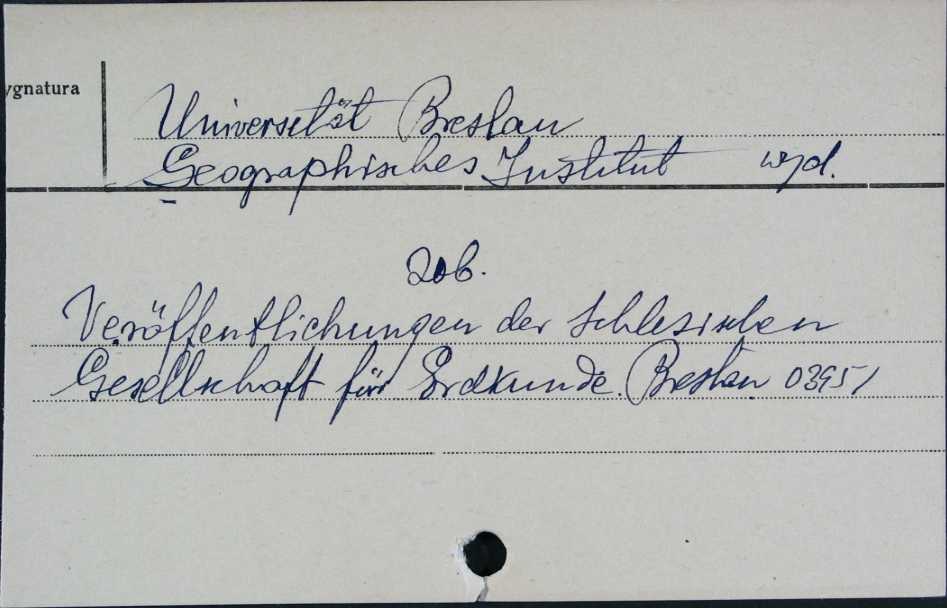 ygnatura
Universität Breslau
Geographisches Institut wyd.
Zob.
Veröffentlichungen der Schlesischen
Gesellschaft für Erdkunde. Breslau 03951